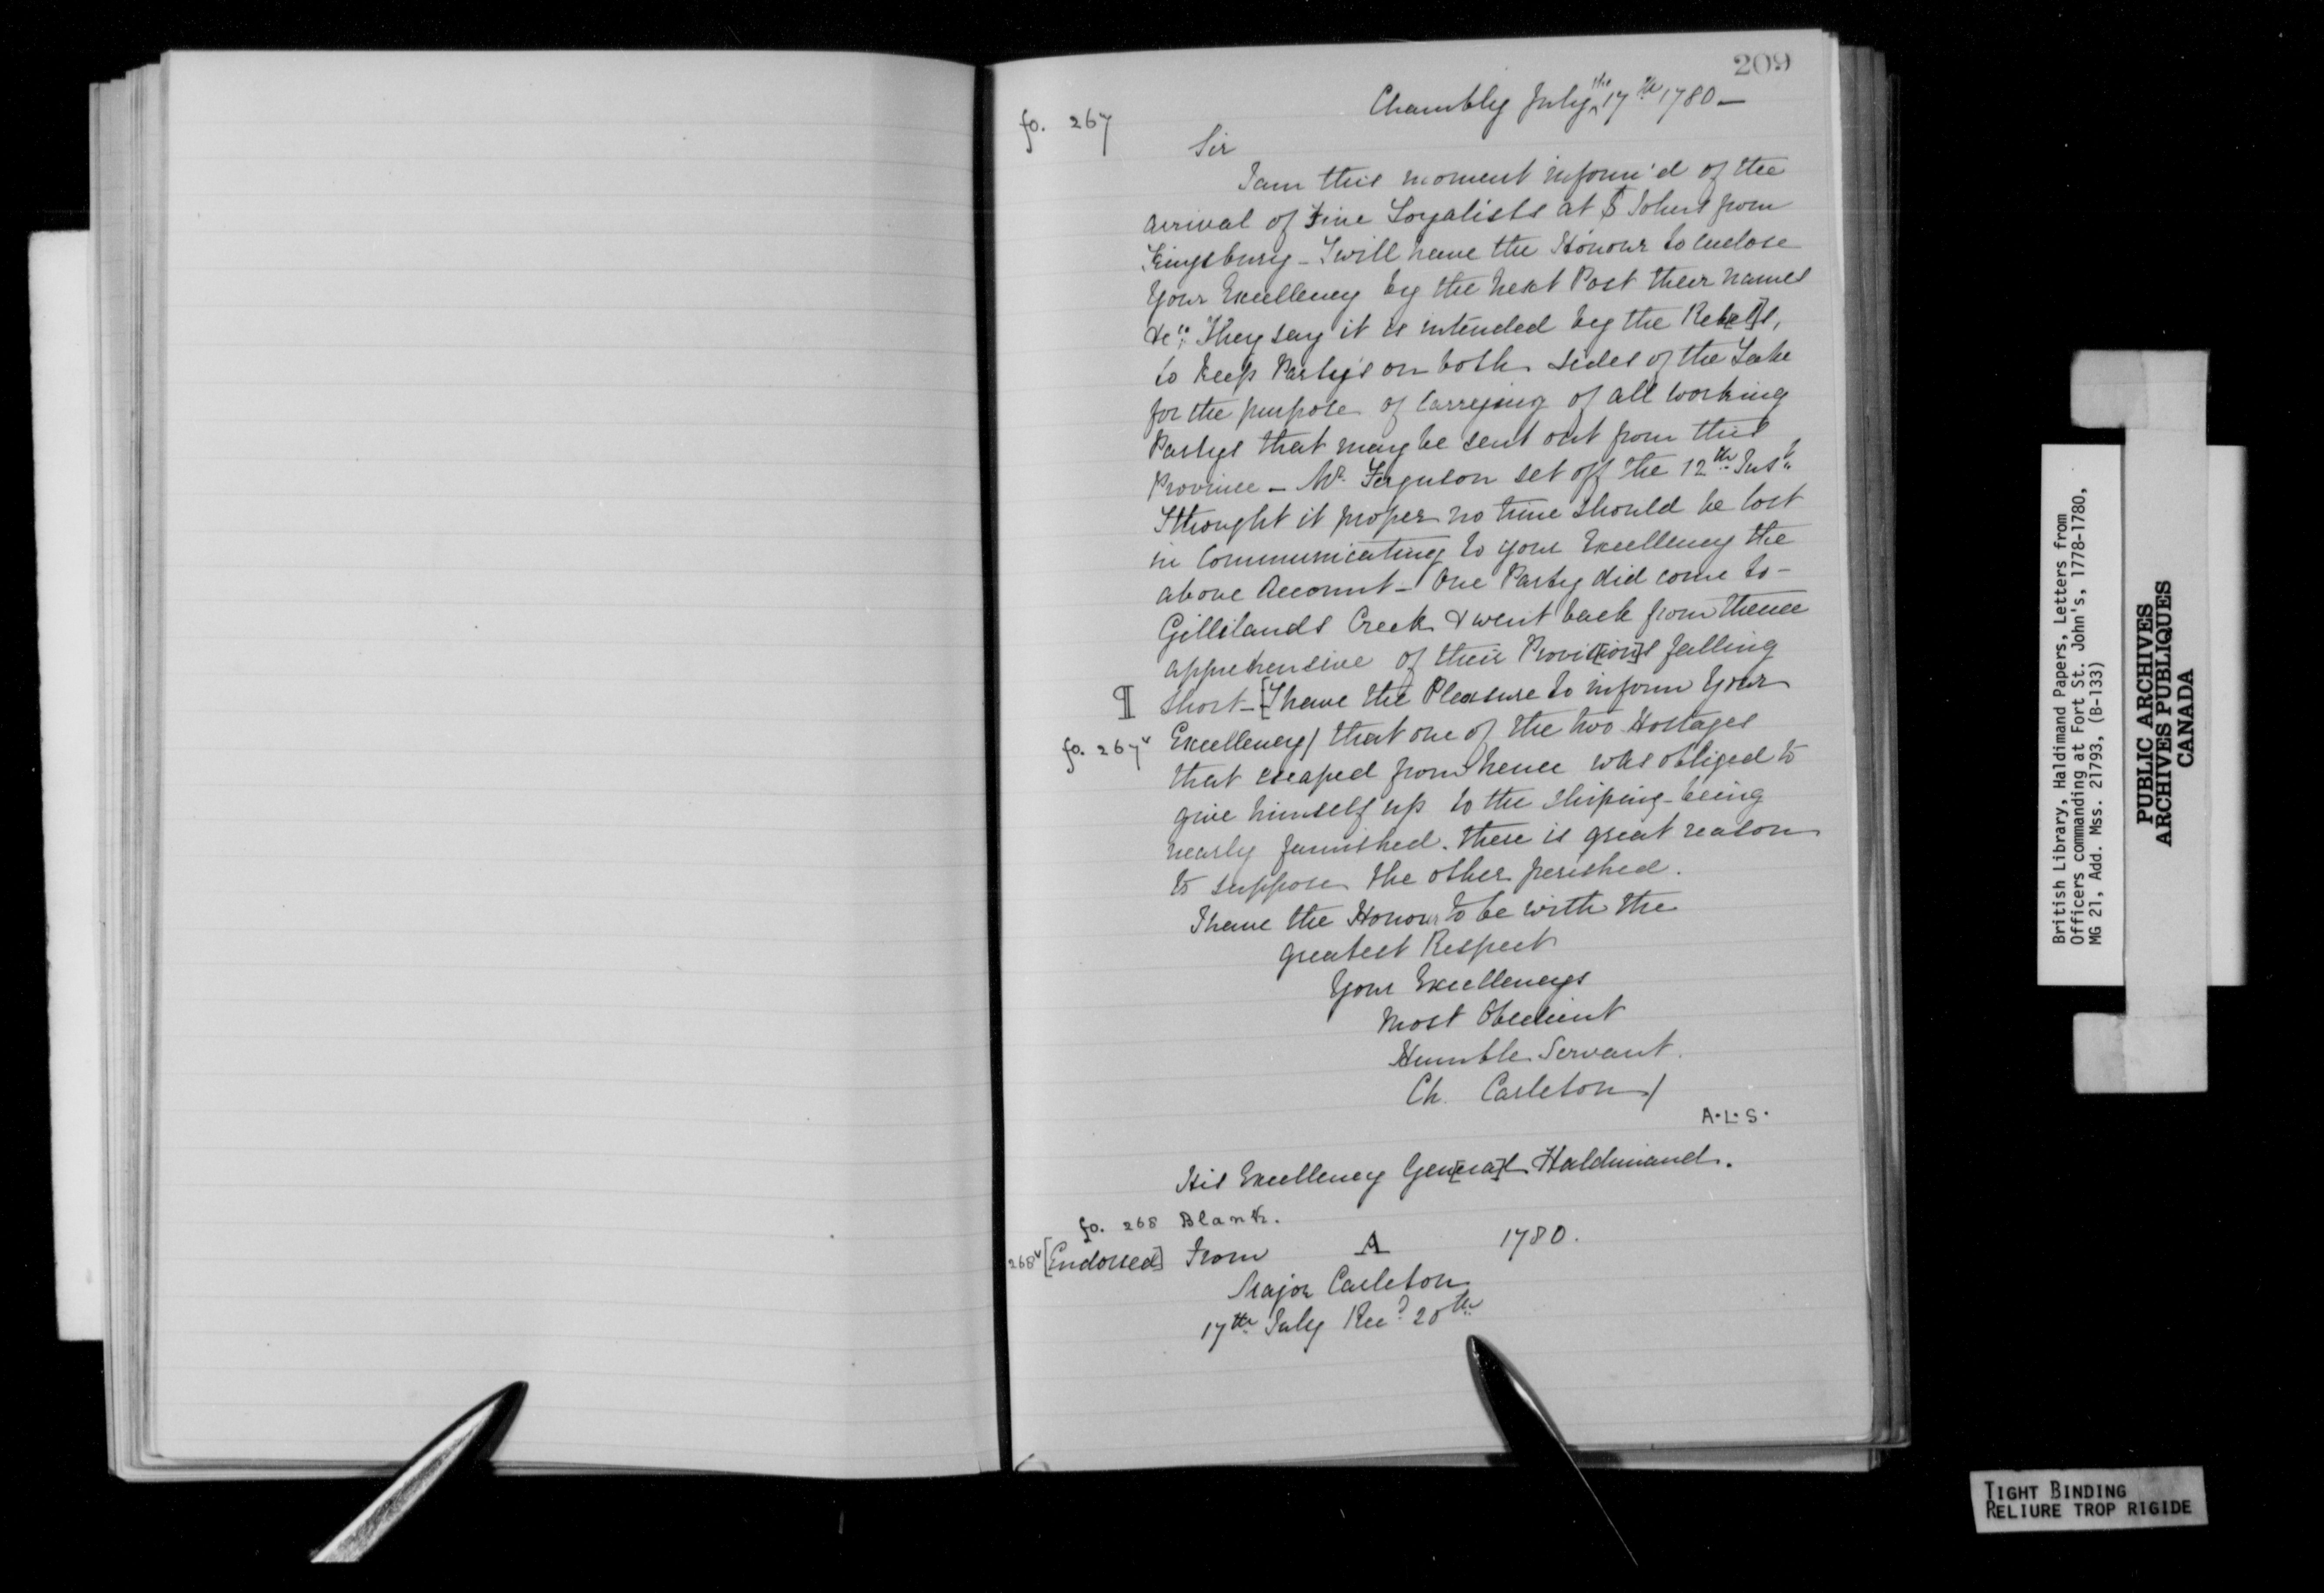 209
fo. 267
Chambly July the 17th 1780 —
Sir
I am this moment inform'd of the
arrival of Five Loyalists at St Johns from
Kingsbury - I will have the Honour to enclose
Your Excellency by the next Post their names
&ca. They say it is intended by the Reb[el]s,
to keep Partys on both sides of the Lake
for the purpose of Carrying of all working
Partys that may be sent out from this
Province - Mr. Ferguson set off the 12th Inst.
I thought it proper no time should be lost
in Communicating to your Excellency the
above Account - One Party did come to -
Gillilands Creek & went back from thence
apprehensive of their Provi[sion]s falling
¶ short - [I have the Pleasure to inform Your
fo. 267v Excellency/ that one of the two Hostages
that escaped from hence was obliged to
give himself up to the shiping - being
nearly famished. there is great reason
to suppose the other perished.
I have the Honour to be with the
greatest Respect
Your Excellencys
Most Obedient
Humble Servant.
Ch. Carleton/
A.L.S.
His Excellency Gen[era]l Haldimand.
fo. 268 Blank.
268v [Endorsed] From A 1780.
Major Carleton
17th July Recd 20th
British Library, Haldimand Papers, Letters from
Officers commanding at Fort St. John's, 1778-1780,
MG 21, Add. Mss. 21793, (B-133)
PUBLIC ARCHIVES
ARCHIVES PUBLIQUES
CANADA
TIGHT BINDING
RELIURE TROP RIGIDE